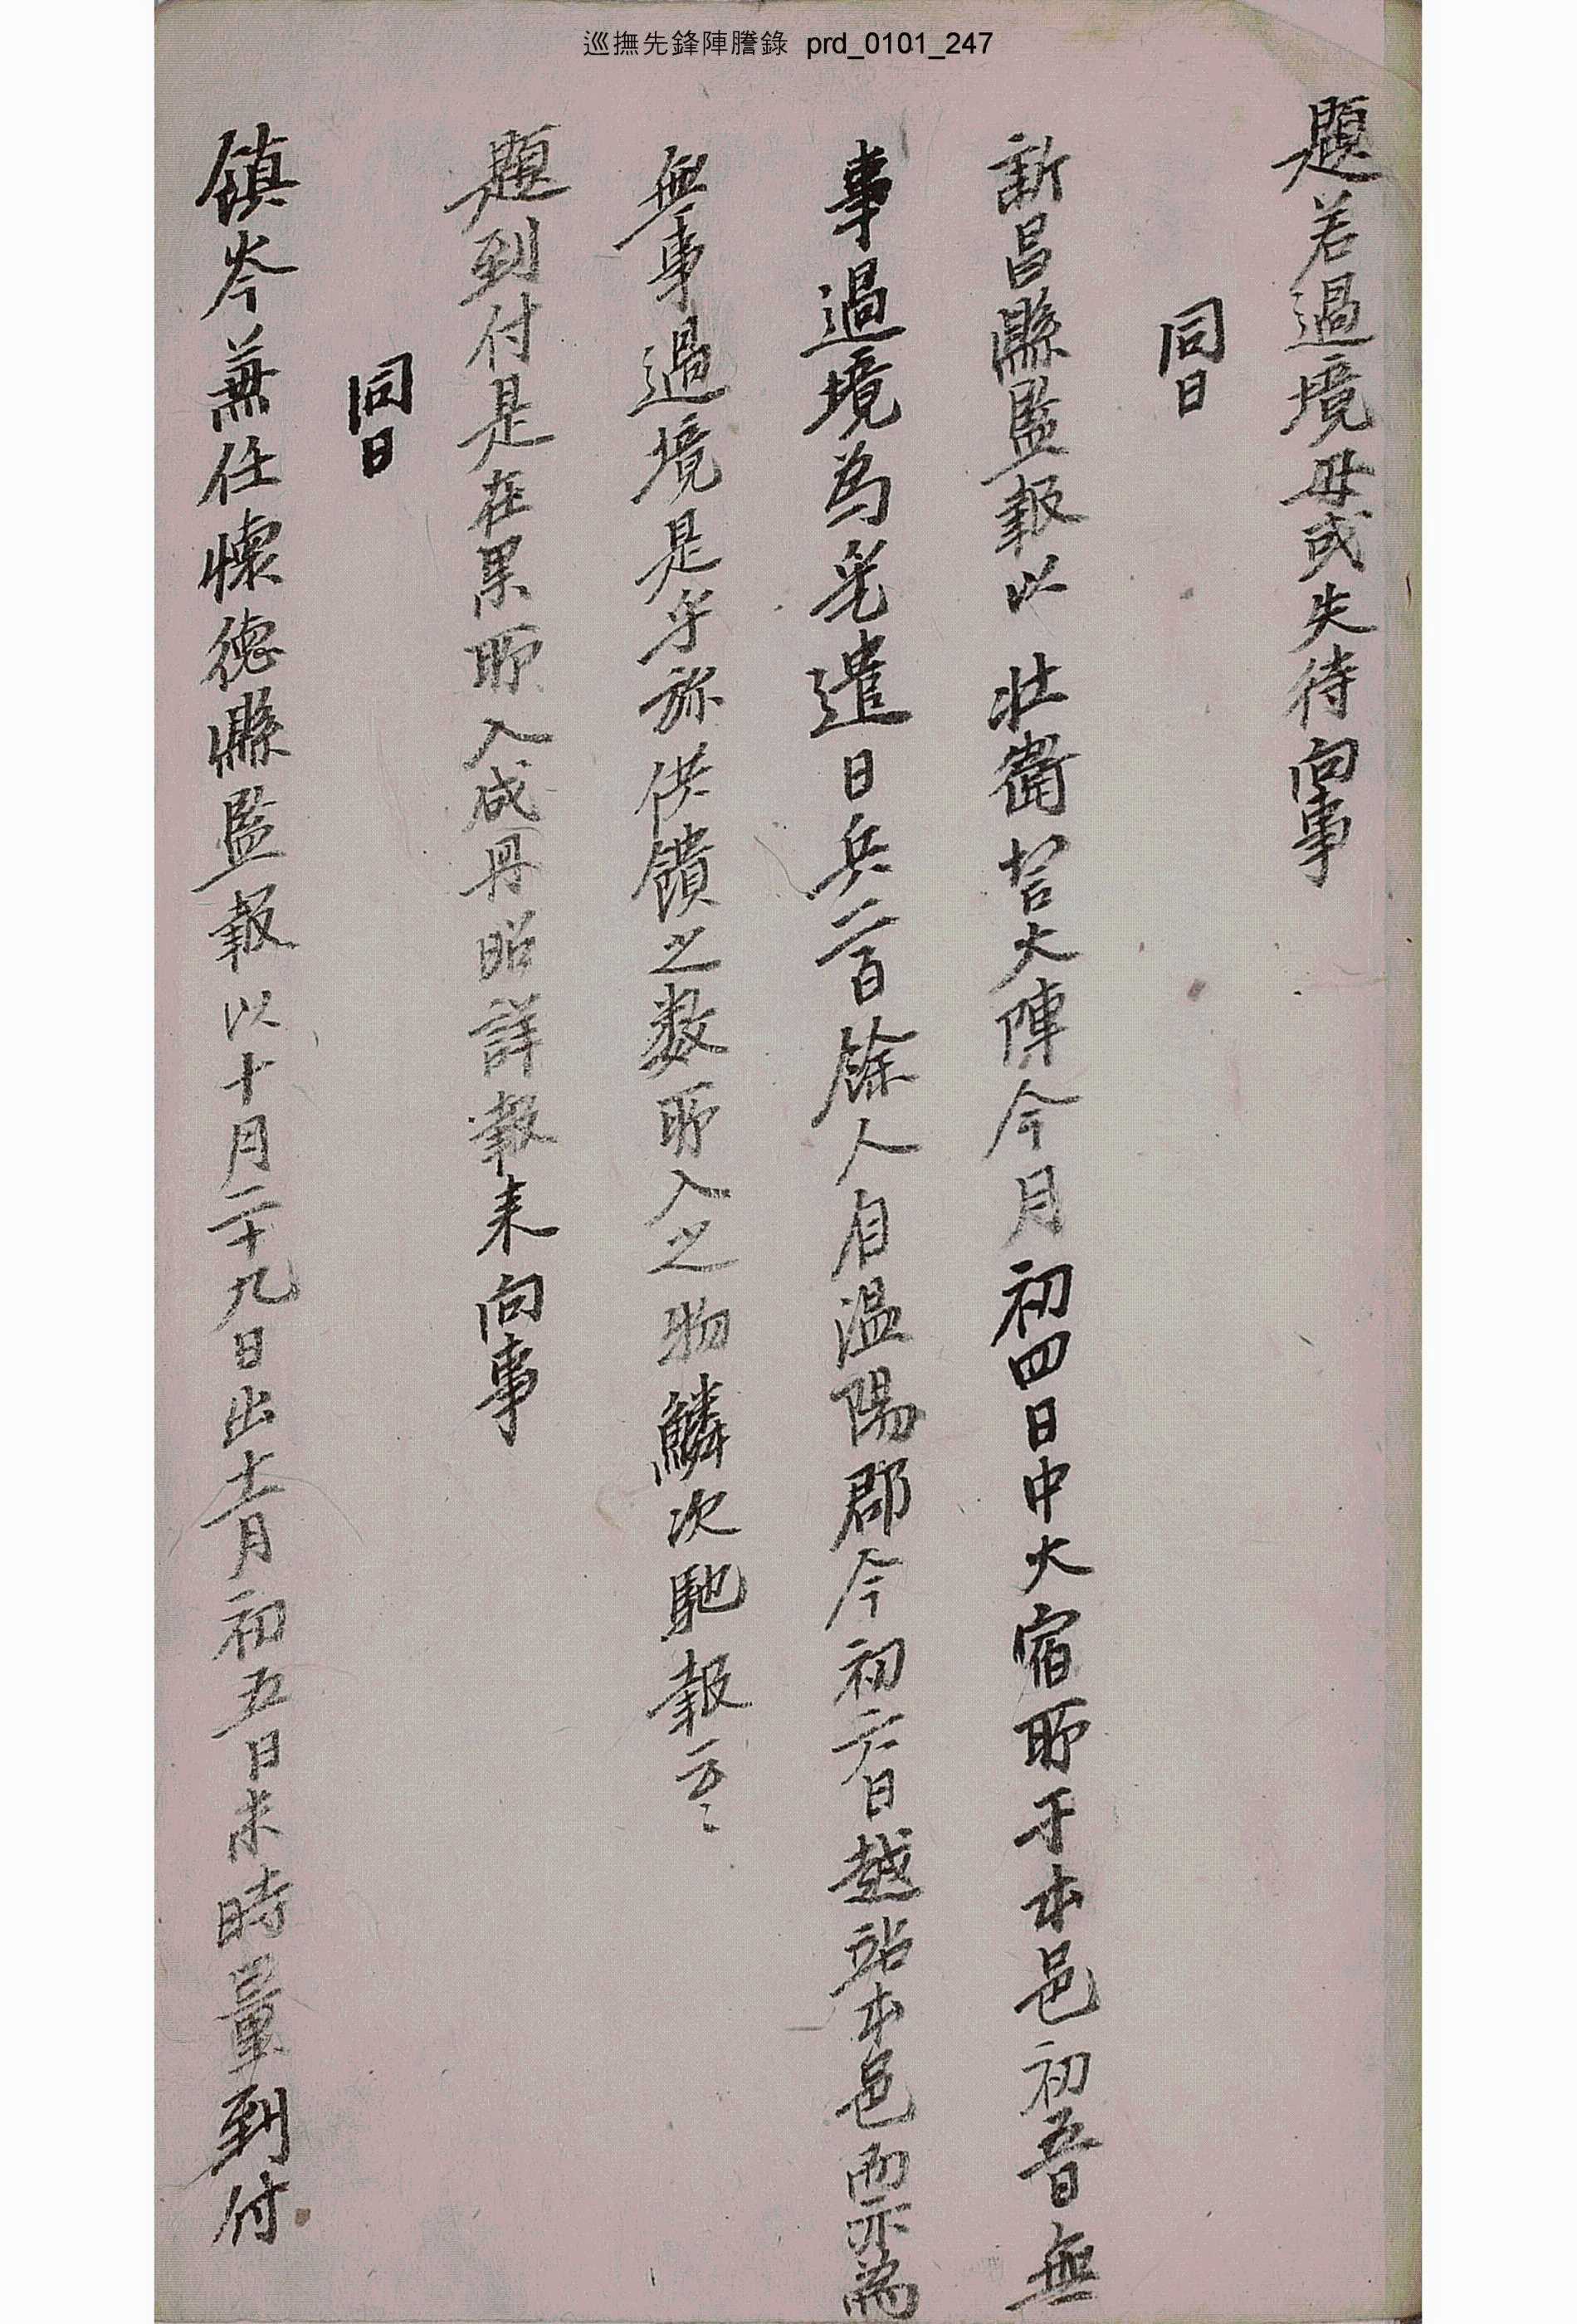 巡撫先鋒陣謄錄 prd_0101_247
題若過境毋或失待向事
同日
新昌縣監報以 壯衛営大陣今月初四日中火宿所于本邑初五日無
事過境為乎㫆遣日兵二百餘人自溫陽郡今初六日越站本邑而亦為
無事過境是乎㫆供饋之数所入之物鱗次馳報云云
題到付是在果所入成冊昭詳報来向事
同日
鎮岑兼任懷德縣監報以十月二十九日出十一月初五日未時量到付